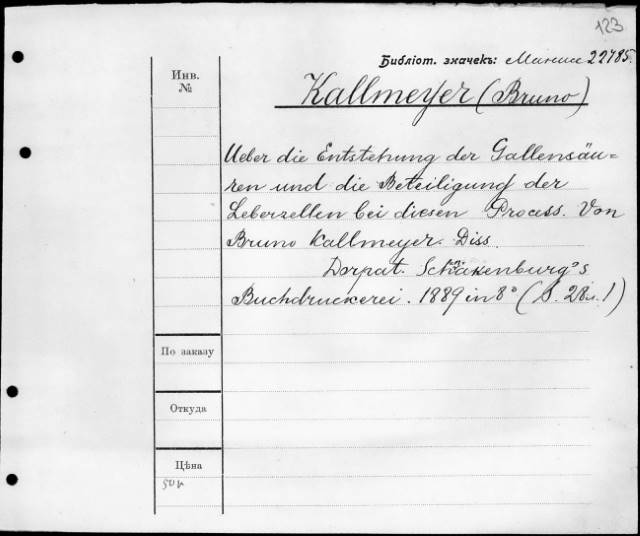 123
Библіот. значекъ: 22785.
Инв.
№
Kallmeyer (Bruno)
Ueber die Entstehung der Gallensäu=
ren und die Beteiligung der
Leberzellen bei diesen Process. Von
Bruno Kallmeyer. Diss.
Dorpat. Schnakenburg's
Buchdruckerei. 1889 in 8°
По заказу
Откуда
Цѣна